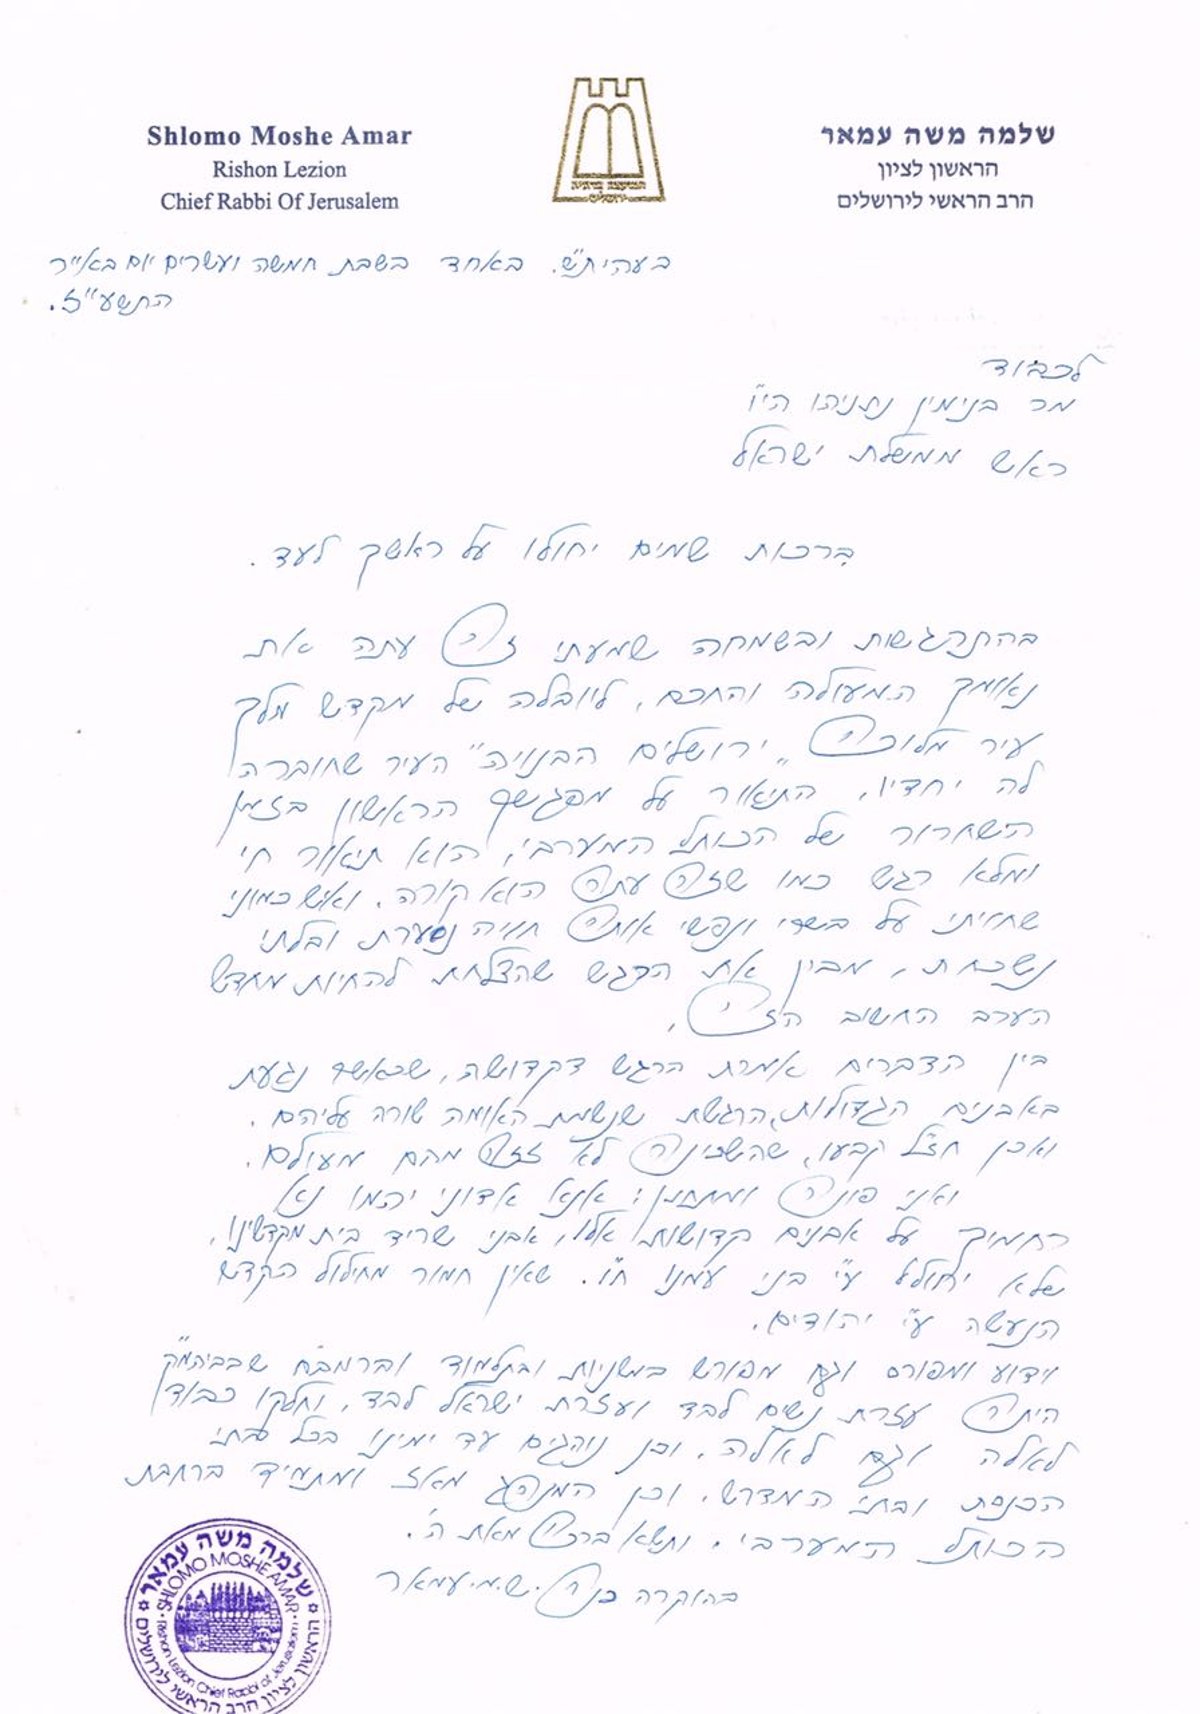 Shlomo Moshe Amar
Rishon Lezion
Chief Rabbi Of Jerusalem
שלמה משה עמאר
הראשון לציון
הרב הראשי לירושלים
המועצה הדתית
ירושלים
בעהית"ש. באחד בשבת חמשה ועשרים יום באייר
התשע"ז.
לכבוד
מר בנימין נתניהו הי"ו
ראש ממשלת ישראל
ברכות שמים יחולו על ראשך לעד.
בהתרגשות ובשמחה שמעתי זה עתה את
נאומך המעולה והחכם, ליובלה של מקדש מלך
עיר מלוכה "ירושלים הבנויה" העיר שחוברה
לה יחדיו, התאור על מפגשך הראשון בזמן
השחרור של הכותל המערבי, הוא תיאור חי
ומלא רגש כמו שזה עתה הוא קורה. ואיש כמוני
שחויתי על בשרי ונפשי אותה חויה נסערת ובלתי
נשכחת, מבין את הרגש שהצלחת להחיות מחדש
הערב החשוב הזה,
בין הדברים אמרת הרגש דקדושה, שכאשר נגעת
באבנים הגדולות, הרגשת שנשמת האומה שורה עליהם.
ואכן חז"ל קבעו, שהשכינה לא זזה מהם מעולם.
ואני פונה ומתחנן: אנא אדוני יהמו נא
רחמיך על אבנים קדושות אלו, אבני שריד בית מקדשינו,
שלא יחולל ע"י בני עמנו ח"ו. שאין חמור מחילול הקדש
הנעשה ע"י יהודים.
וידוע ומפורסם וגם מפורש במשניות ובתלמוד וברמב"ם שבביהמ"ק
היתה עזרת נשים לבד ועזרת ישראל לבד, וחלקו כבוד
לאלה וגם לאלה. וכן נוהגים עד ימינו בכל בתי
הכנסת ובתי המדרש, וכן המנהג מאז ומתמיד ברחבת
הכותל המערבי. ותשא ברכה מאת ה'.
בהוקרה רבה ש.מ. עמאר
שלמה משה עמאר
SHLOMO MOSHE AMAR
Rishon Lezion Chief Rabbi of Jerusalem
הראשון לציון הרב הראשי לירושלים